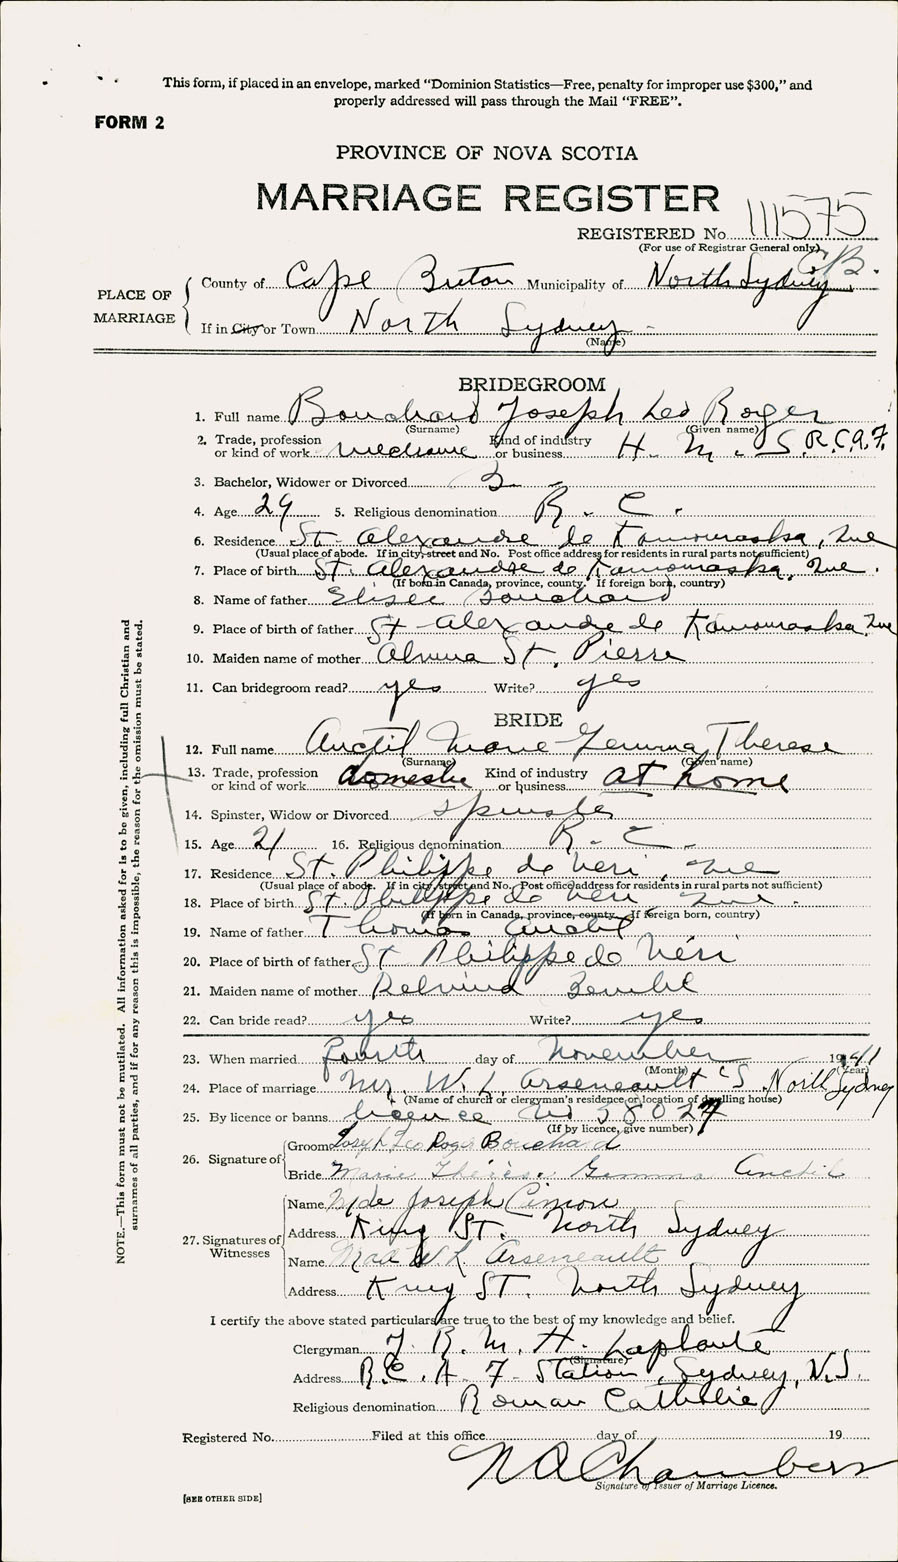 This form, if placed in an envelope, marked “Dominion Statistics—Free, penalty for improper use $300,” and
properly addressed will pass through the Mail “FREE”.
FORM 2
PROVINCE OF NOVA SCOTIA
MARRIAGE REGISTER
REGISTERED No. 111575
(For use of Registrar General only)
C.B.
PLACE OF MARRIAGE
County of Cape Breton Municipality of North Sydney
If in City or Town North Sydney
(Name)
BRIDEGROOM
1. Full name Bouchard Joseph Leo Roger
(Surname) (Given name)
2. Trade, profession or kind of work Kind of industry or business H. M. S. R.C.A.F.
3. Bachelor, Widower or Divorced B
4. Age 29 5. Religious denomination R. C.
6. Residence St. Alexandre de Kamouraska, Que
(Usual place of abode. If in city, street and No. Post office address for residents in rural parts not sufficient)
7. Place of birth St. Alexandre de Kamouraska, Que.
(If born in Canada, province, county. If foreign born, country)
8. Name of father Elisée Bouchard
9. Place of birth of father St-Alexandre de Kamouraska, Que
10. Maiden name of mother Almina St. Pierre
11. Can bridegroom read? yes Write? yes
BRIDE
12. Full name Anctil Marie Gemma Therese
(Surname) (Given name)
13. Trade, profession or kind of work domestic Kind of industry or business at home
14. Spinster, Widow or Divorced Spinster
15. Age 21 16. Religious denomination R. C.
17. Residence St. Philippe de Neri, Que
(Usual place of abode. If in city, street and No. Post office address for residents in rural parts not sufficient)
18. Place of birth St. Philippe de Neri Que.
(If born in Canada, province, county. If foreign born, country)
19. Name of father Thomas Anctil
20. Place of birth of father St Philippe de Néri
21. Maiden name of mother
22. Can bride read? yes Write? yes
23. When married fourth day of November 1941
(Month) (Year)
24. Place of marriage Mr. W. L. Arseneault's North Sydney
(Name of church or clergyman's residence or location of dwelling house)
25. By licence or banns licence No 58027
(If by licence, give number)
26. Signature of
Groom Joseph Leo Roger Bouchard
Bride Marie Thérèse Gemma Anctil
27. Signatures of Witnesses
Name Mde Joseph Cimon
Address King St. North Sydney
Name Mad W. L. Arseneault
Address King ST. North Sydney
I certify the above stated particulars are true to the best of my knowledge and belief.
Clergyman J. R. M. H. Laplante
(Signature)
Address R.C.A.F Station, Sydney, N.S.
Religious denomination Roman Catholic
Registered No. Filed at this office day of 19
N A Chambers
Signature of Issuer of Marriage Licence.
[SEE OTHER SIDE]
NOTE.—This form must not be mutilated. All information asked for is to be given, including full Christian and
surnames of all parties, and if for any reason this is impossible, the reason for the omission must be stated.